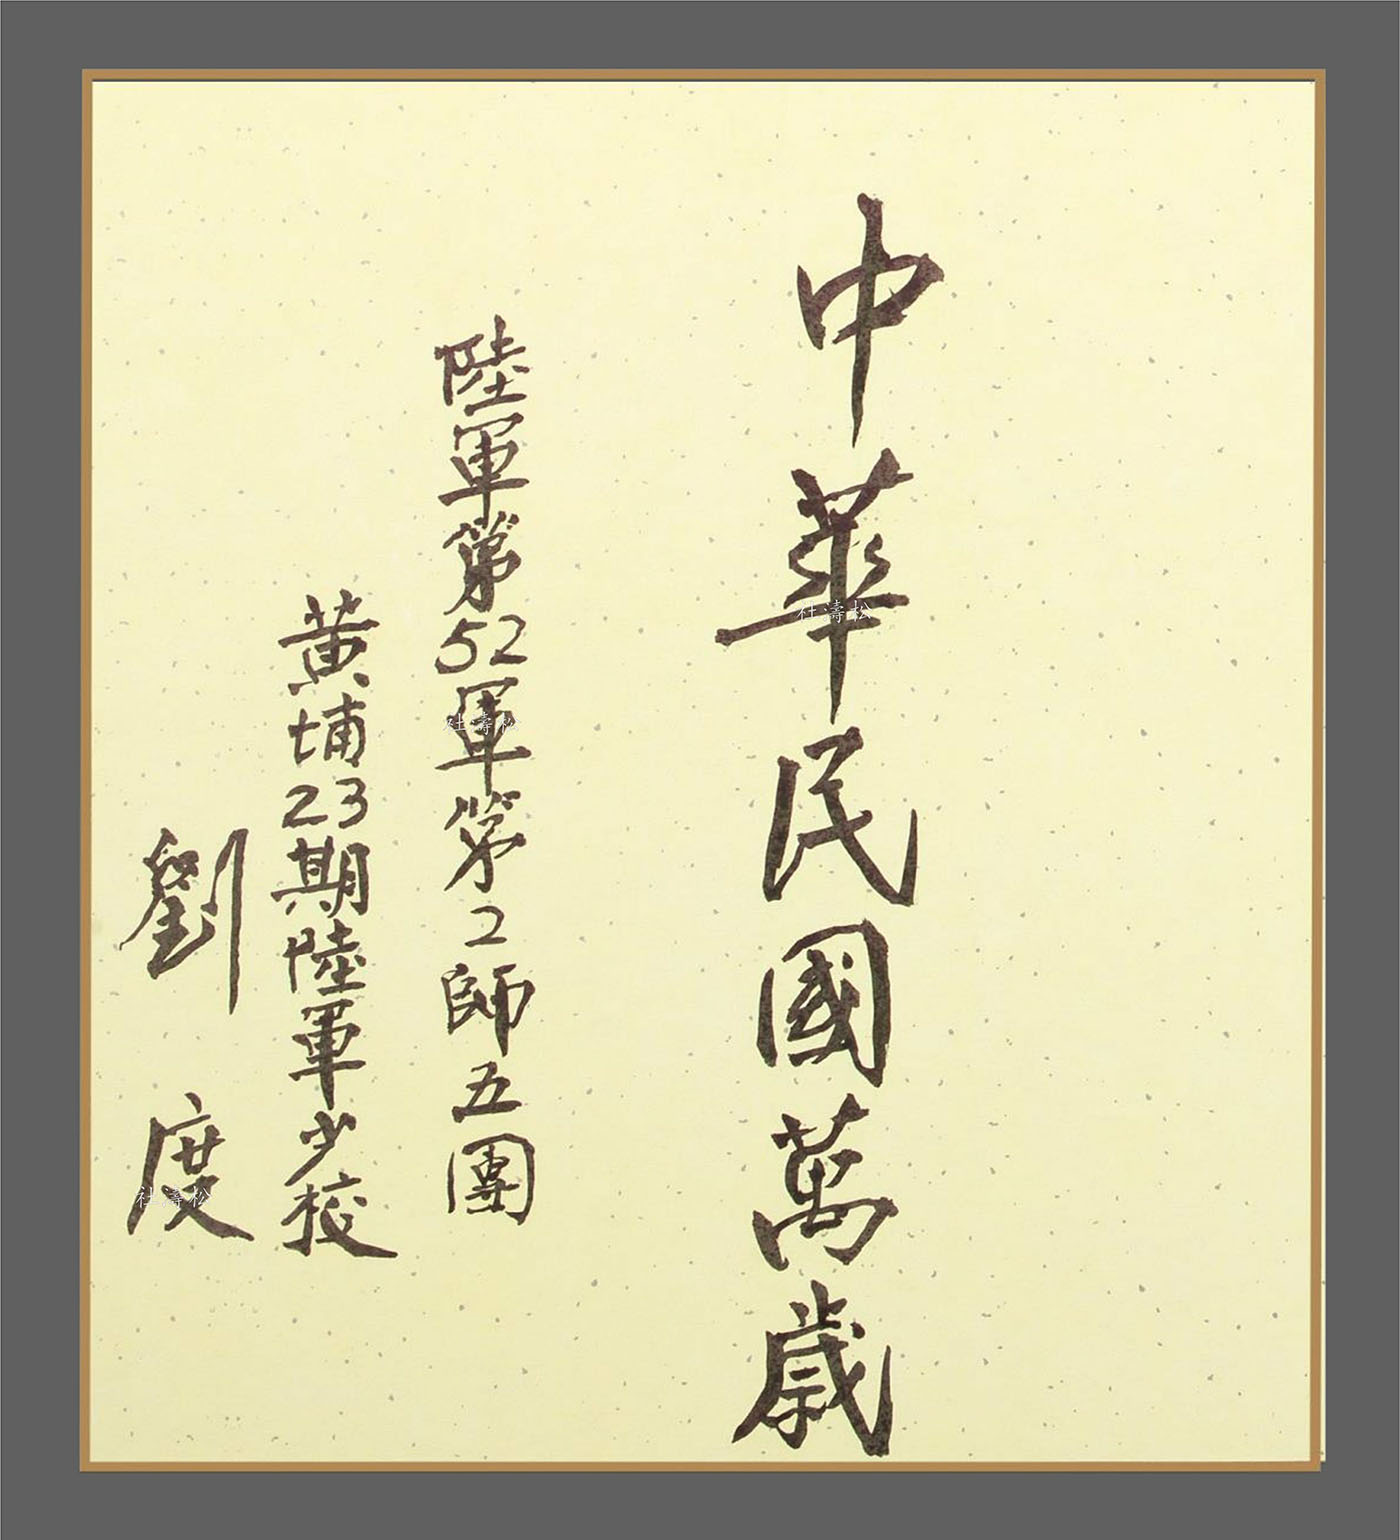 中華民國萬歲
陸軍第52軍第2師五團
黃埔23期陸軍少校
劉度
杜濤松
杜濤松
杜濤松